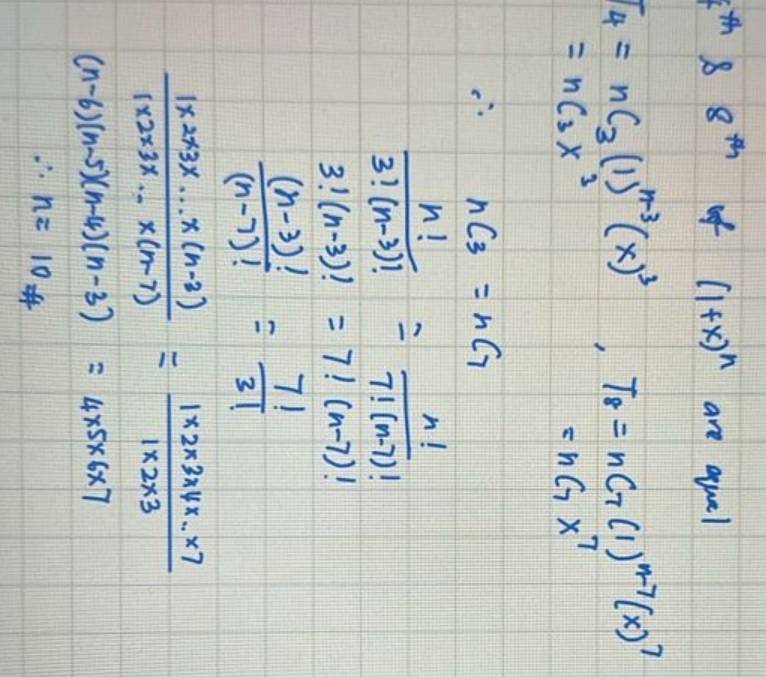 th & 8th of (1+x)^n are equal
T4 = nC3 (1)^n-3 (x)^3 , T8 = nC7 (1)^n-7 (x)^7
= nC3 x^3 = nC7 x^7
∴ nC3 = nC7
n! / 3!(n-3)! = n! / 7!(n-7)!
3!(n-3)! = 7!(n-7)!
(n-3)! / (n-7)! = 7! / 3!
1x2x3x...x(n-3) / 1x2x3x...x(n-7) = 1x2x3x4x..x7 / 1x2x3
(n-6)(n-5)(n-4)(n-3) = 4x5x6x7
∴ n = 10 #